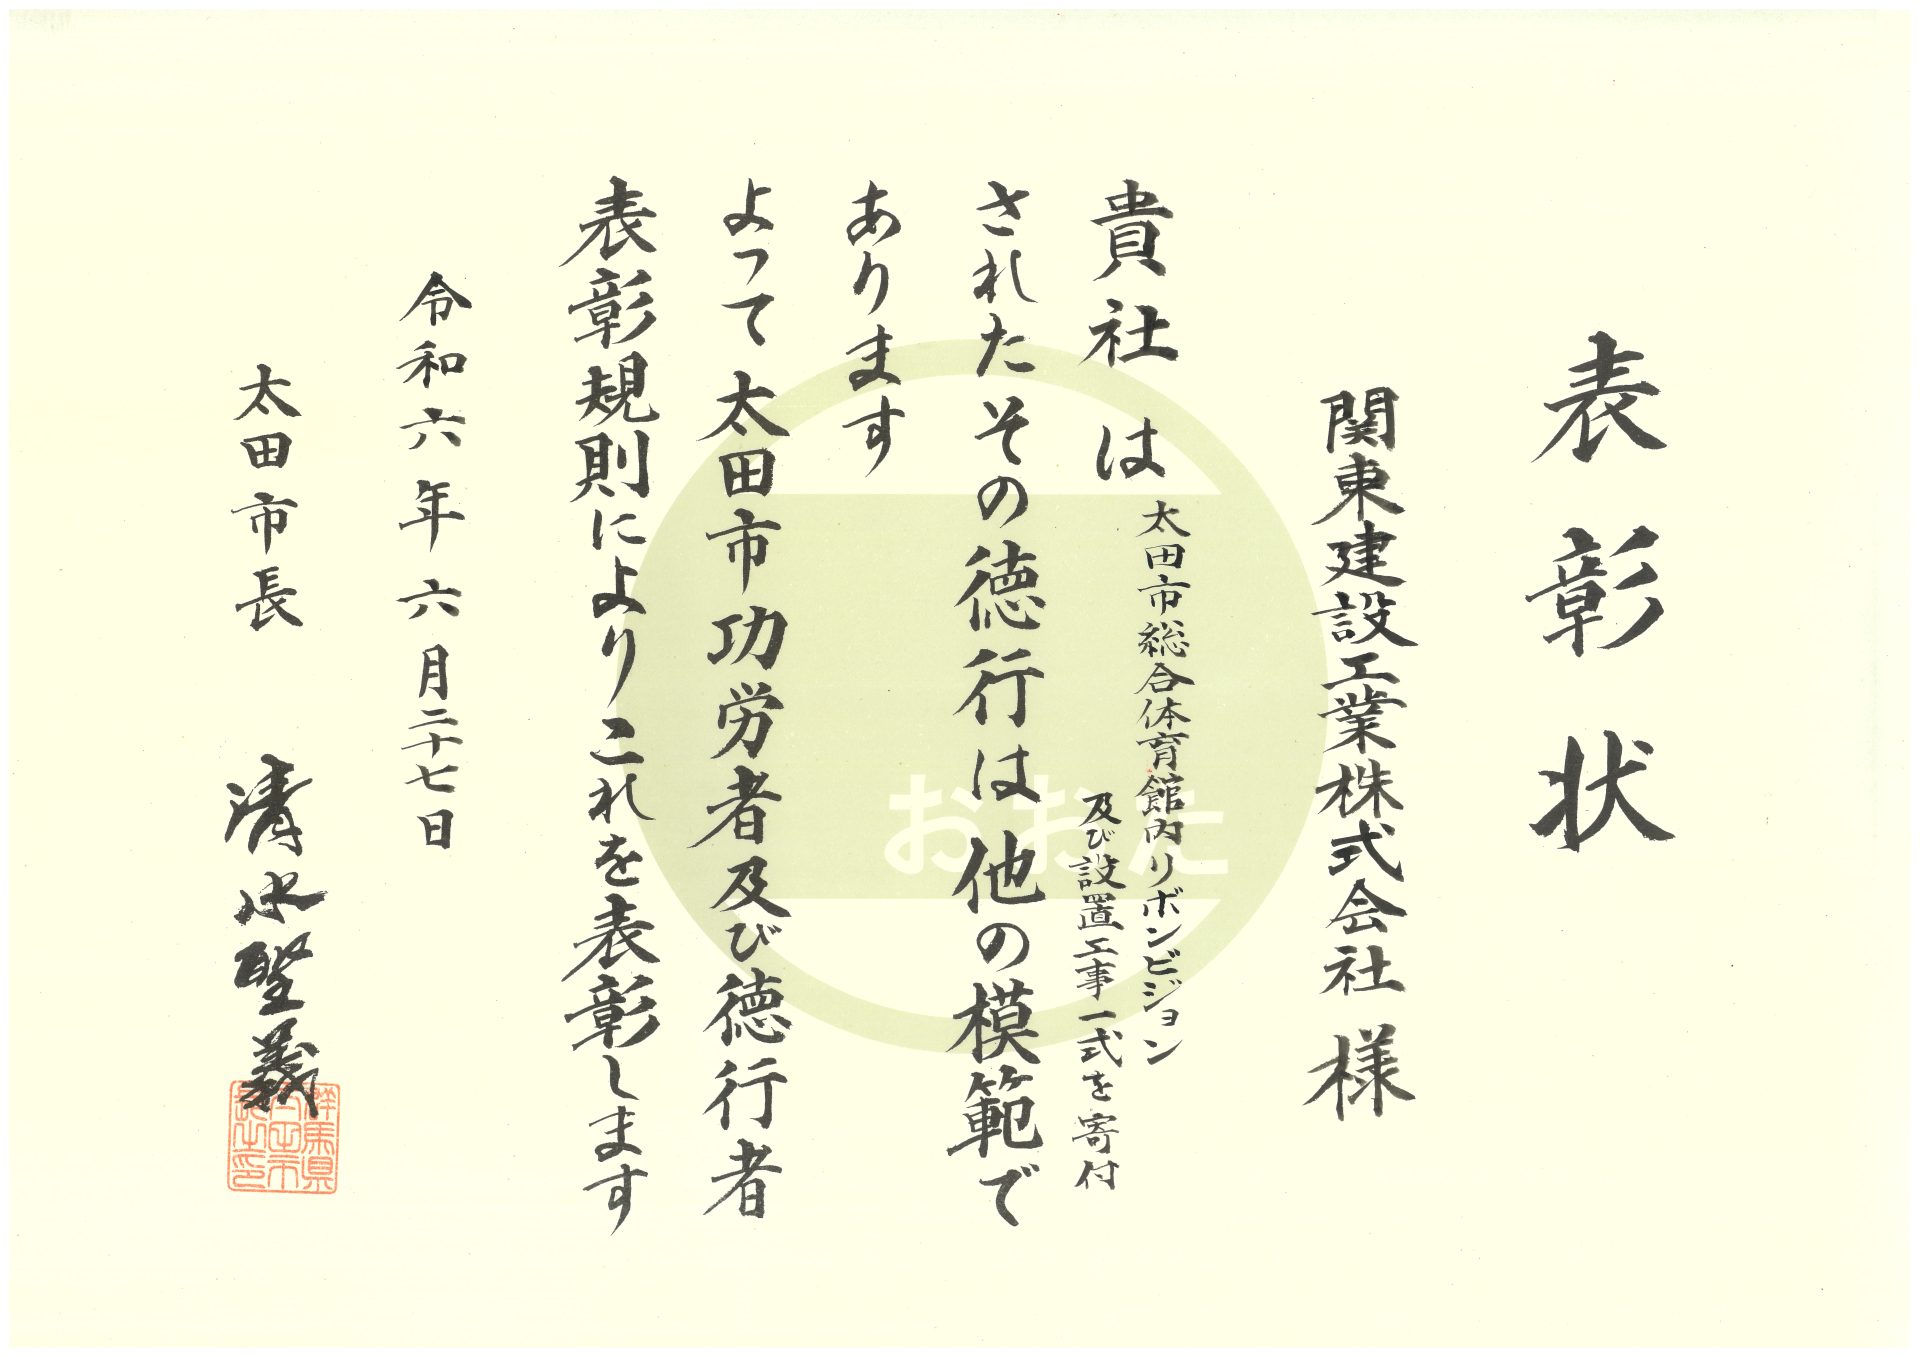 表彰状
関東建設工業株式会社 様
貴社は
太田市総合体育館内リボンビジョン
及び設置工事一式を寄付
されたその徳行は他の模範で
あります
よって太田市功労者及び徳行者
表彰規則によりこれを表彰します
令和六年六月二十七日
太田市長 清水聖義
群馬県
太田市
長之印
おおた